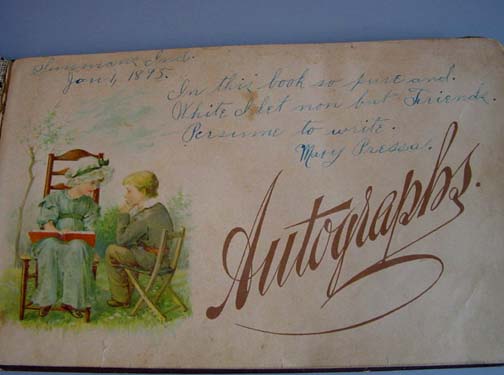 Hinsmans, Ind.
Jan 1, 1895.
In this book so pure and
White I let non but Friends
Persume to write.
Mary Pressa.
Autographs.